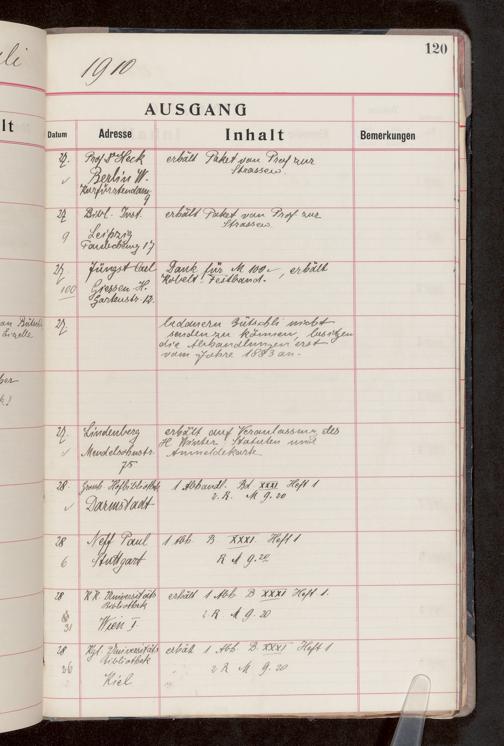 120
1910
AUSGANG
Datum Adresse Inhalt Bemerkungen
27. Prof Dr Heck erhält Paket von Prof zur
Berlin W. Strassen.
Kurfürstendamm
9
27 Bibl. Inst. erhält Paket von Prof zur
9 Leipzig Strassen.
17
27 Jüngst Carl Dank für M 100.-, erhält
100 Giessen H. Kobelt Festband.
Gartenstr. 12.
27. bedauern Bütschli nicht
senden zu können, besitzen
die Abhandlungen erst
vom Jahre 1883 an.
27. Lindenberg erhält auf Veranlassung des
Mendelssohnstr. H. Winter Statuten und
75 Anmeldekarte
28. Hofbibliothek 1 Abhandl. Bd XXXI Heft 1
Darmstadt 2 R. M 9.20
28 Neff Paul 1 Abh B XXXI Heft 1
6 Stuttgart R M 9.20
28 K.K. Universitäts erhält 1 Abh B XXXI Heft 1.
Bibliothek
31 Wien I. 2 R M 9.20
28 Kgl. Universitäts erhält 1 Abh B. XXXI Heft 1
26 Bibliothek 2 R M 9.20
Kiel